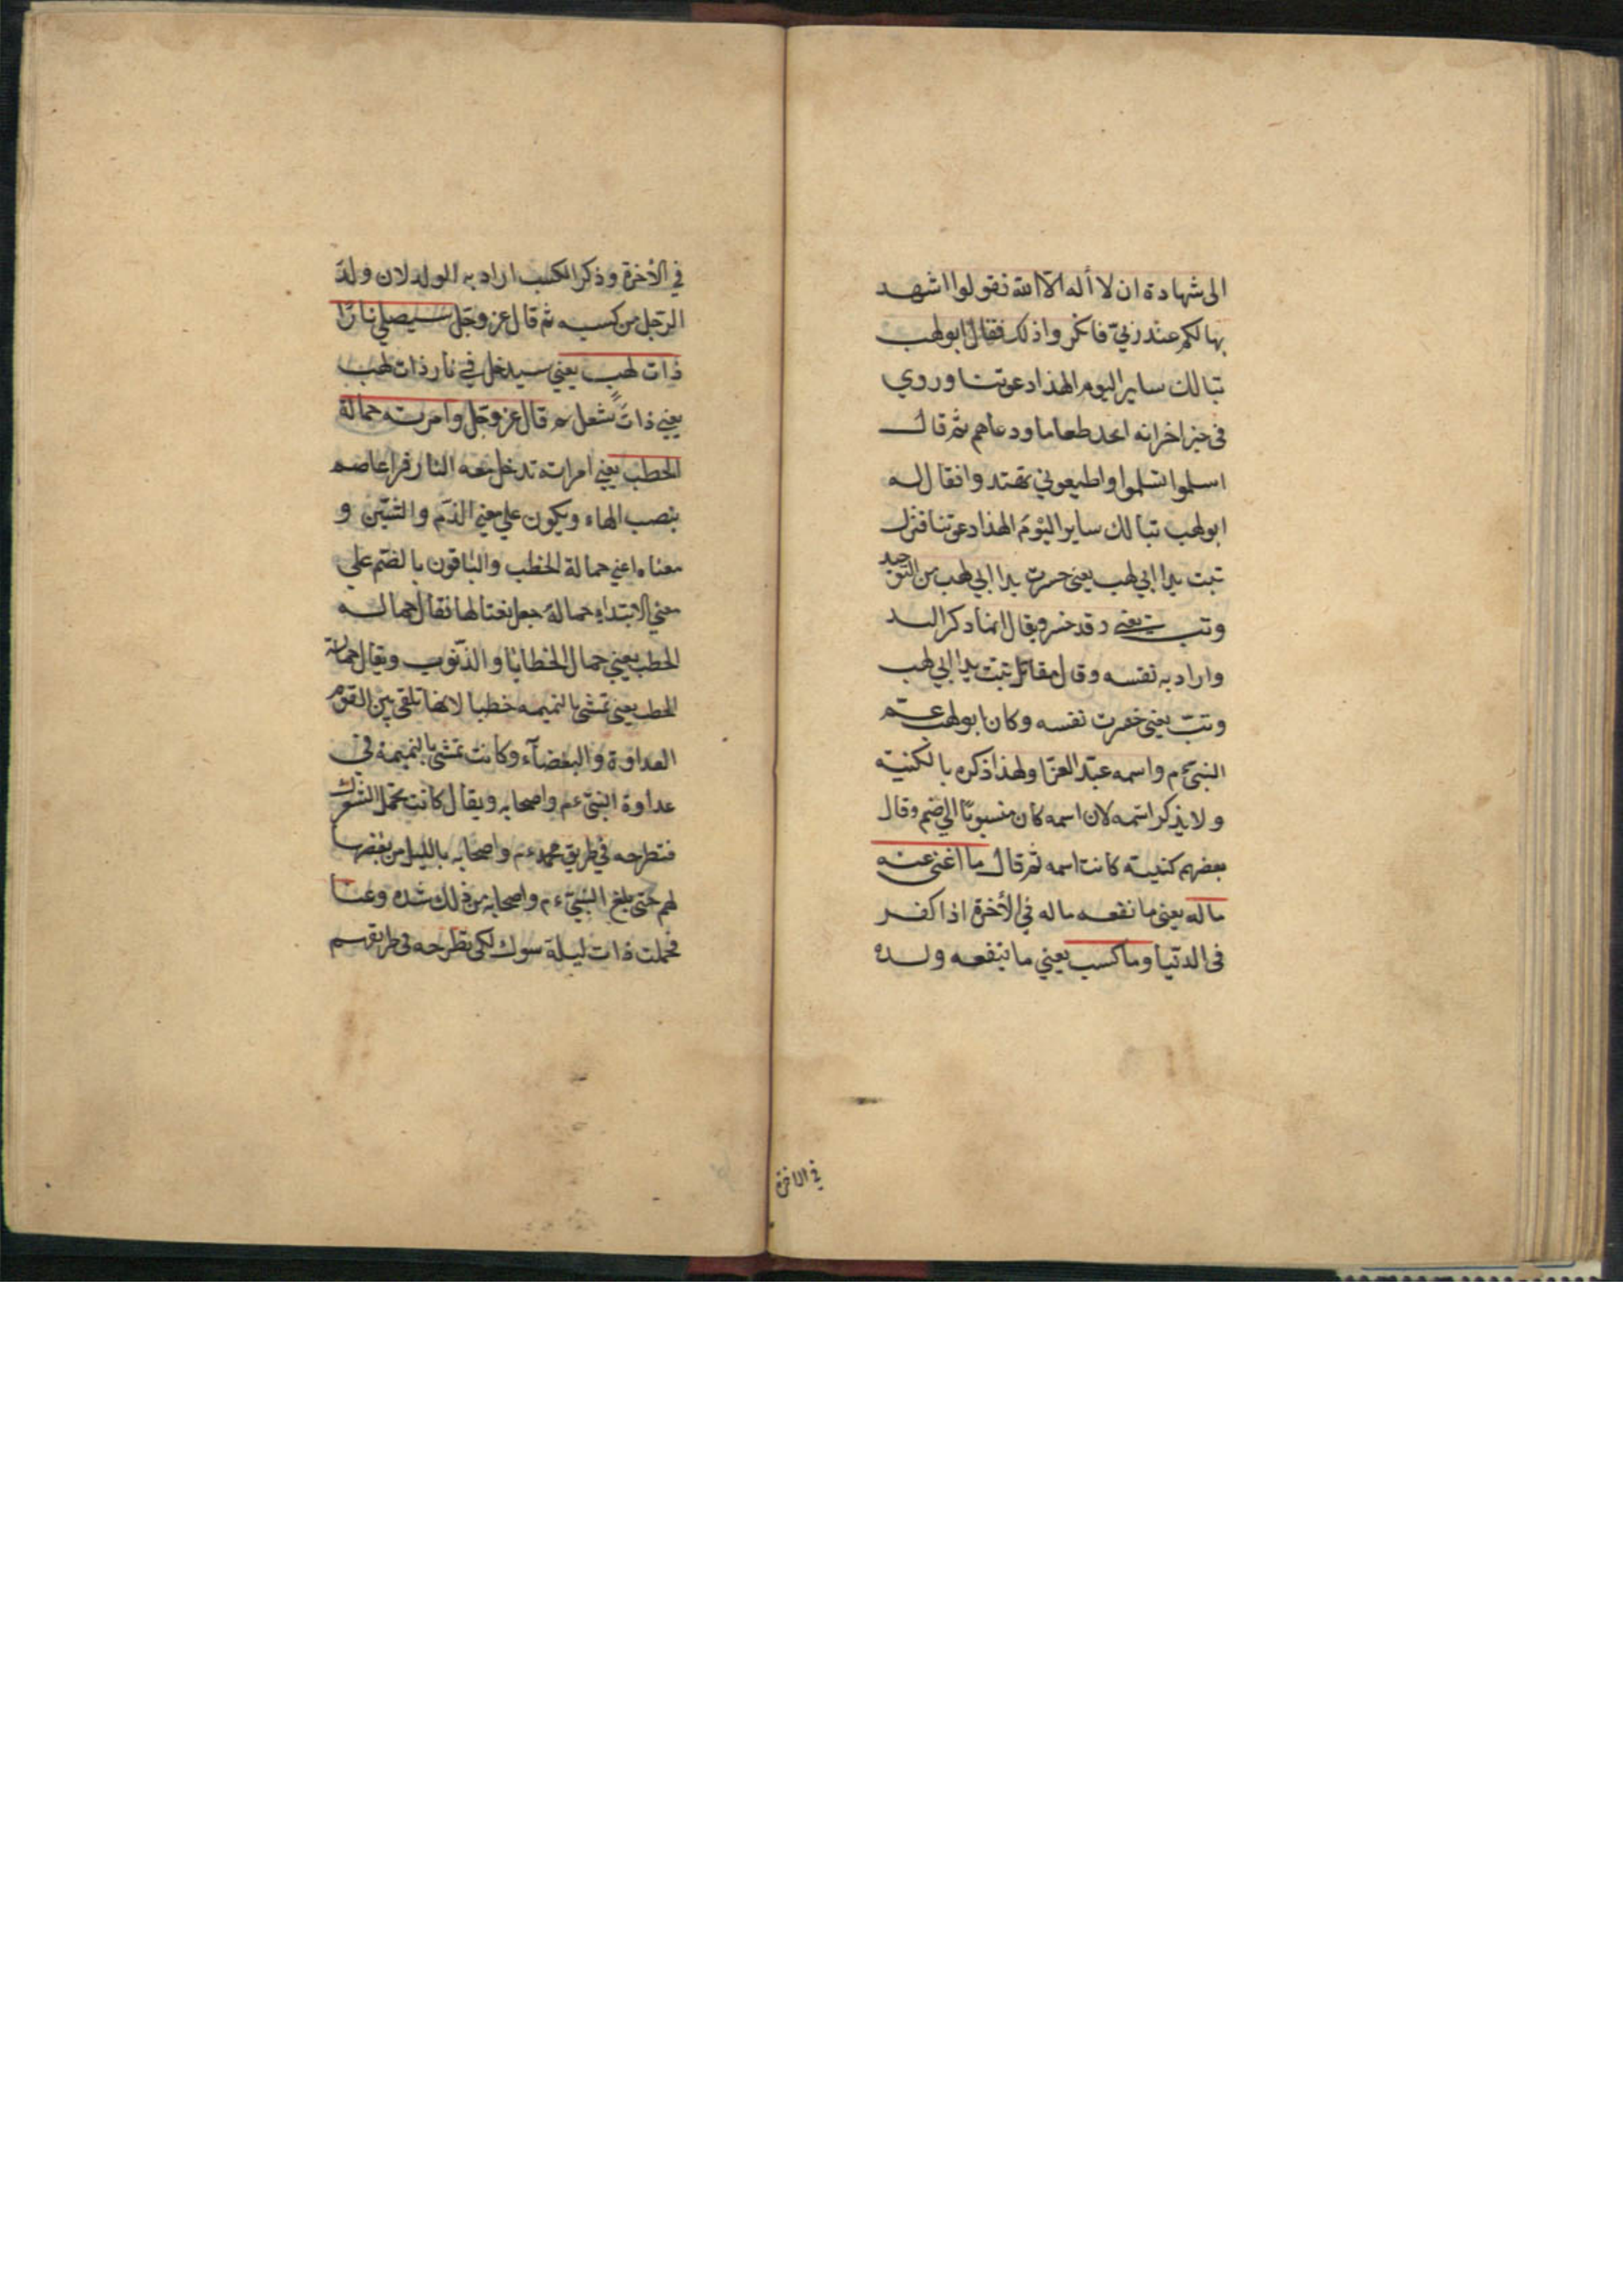 الى شهادة ان لا أله الا الله نقولوا اشهد
بها لكم عند ربي فانكروا ذلك فقال ابولهب
تبالك ساير اليوم الهذا دعوتنا وروي
في خبر اخرانه اتخد طعاما ودعاهم ثم قال
اسلموا تسلموا واطيعوني تهتدوا فقال له
ابولهب تبالك ساير اليوم الهذا دعوتنا فنزل
تبت يدا ابي لهب يعني خسرت يدا ابي لهب من التوحيد
وتب يعني وقد خسر ويقال انما ذكر اليد
واراد به نفسه وقال مقاتل تبت يدا ابي لهب
وتب يعني خسرت نفسه وكان ابولهب عم
النبي ءم واسمه عبد العزا ولهذا ذكره بالكنية
ولا يذكر اسمه لان اسمه كان منسوبا الي صنم وقال
بعضهم كنيته كانت اسمه ثم قال ما اغنى عنه
ماله يعني ما نفعه ماله في الأخرة اذا كفر
في الدنيا وما كسب يعني ما ينفعه ولده
في الاخرة
في الأخرة وذكر الكسب اراد به الولد لان ولد
الرجل من كسبه ثم قال عز وجل سيصلي نارا
ذات لهب يعني سيدخل في نار ذات لهب
يعني ذات شعل ثم قال عز وجل وامرته حمالة
الحطب يعني امراته تدخل معه النار قرا عاصم
بنصب الهاء ويكون علي معني الذم والشين و
معناه اعني حمالة الحطب والباقون بالضم علي
معني الابتداء حمالة جعل نعتا لها نقال حمالة
الحطب يعني حمال الخطايا والذنوب ويقال حمالة
الحطب يعني تمشي بالنميمه حطبا لانها تلقي بين القوم
العداوة والبغضآء وكانت تمشي بالنميمة في
عداوة النبي ءم واصحابه ويقال كانت تحمل الشوك
فتطرحه في طريق محمد ءم واصحابه بالليل من بغضها
لهم حتى بلغ النبي ءم واصحابه من ذلك شده وعنا
فحملت ذات ليلة سوك لكي تطرحه في طريقهم